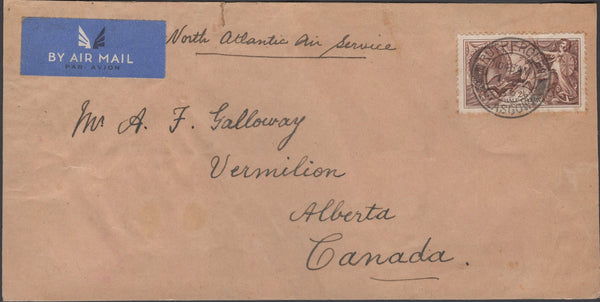 BY AIR MAIL
PAR AVION
North Atlantic Air Service
Mr A. F. Galloway
Vermilion
Alberta
Canada.